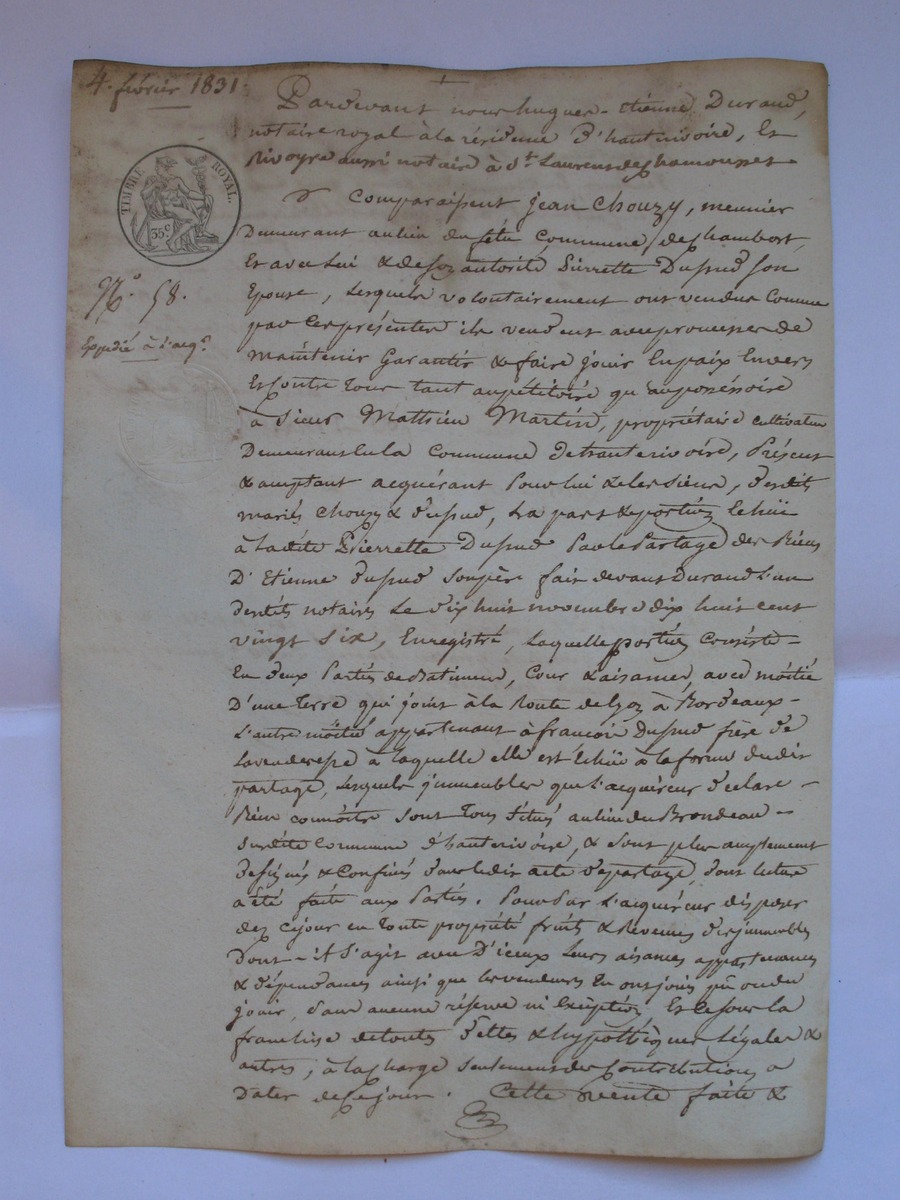 4. février 1831.
Pardevant nous hugues-étienne Durand,
notaire royal à la résidence d'hauterivoire, Et
Rivoyre aussi notaire à St. Laurent de Chamousset
TIMBRE ROYAL.
35c
Comparaissent jean Chouzy, meunier
Demeurant au lieu du fétu Commune de Chambost,
Et avec Lui & de son autorité Pierrette Dupud son
Epouse, Lesquels volontairement ont vendu Comme
No. 58.
par Ces présentes ils vendent avec promesse de
Expédié à l'acqr.
maintenir Garantir & faire jouir En paix Envers
Et Contre Tous tant au pétitoire qu'au possessoire
à Sieur Matthieu Martin, propriétaire cultivateur
Demeurant En la Commune de hauterivoire, Présent
& acceptant acquérant Pour lui & les Siens, desdits
mariés Chouzy & dupud, La part & portion Echüe
à Ladite Pierrette Dupud Par le Partage des Biens
D'Etienne dupud Son père fait devant Durand L'un
desdits notaires Le dix huit novembre dix huit cent
vingt six, Enregistré, Laquelle portion Consiste
En deux Parties de Batiment, Cour & aisances, avec moitié
D'une Terre qui joint à La Route de Lyon à Bordeaux
L'autre moitié appartenant à françois Dupud frère de
La venderesse à laquelle elle est Echüe à la forme dudit
partage, Lesquels jmmeubles que L'acquéreur declare
Bien connoître sont Tous Situés au lieu du Brondeau
Susdite Commune d'hauterivoire, & Sont plus amplement
désignés & Confinés dans ledit acte de partage, dont lecture
a été faite aux Parties. Pour Par L'acquéreur disposer
dez ce jour en Toute propriété fruits & Revenus des jmmeubles
dont il S'agit avec D'iceux Leurs aisances appartenances
& dépendances ainsi que les vendeurs En ont joui pu ou du
jouir, Sans aucune réserve ni Exception Et Ce Sous la
franchise de toutes dettes & hypothèques Légales &
autres, à la Charge Seulement des Contributions a
Dater de Ce jour. Cette vente faite &